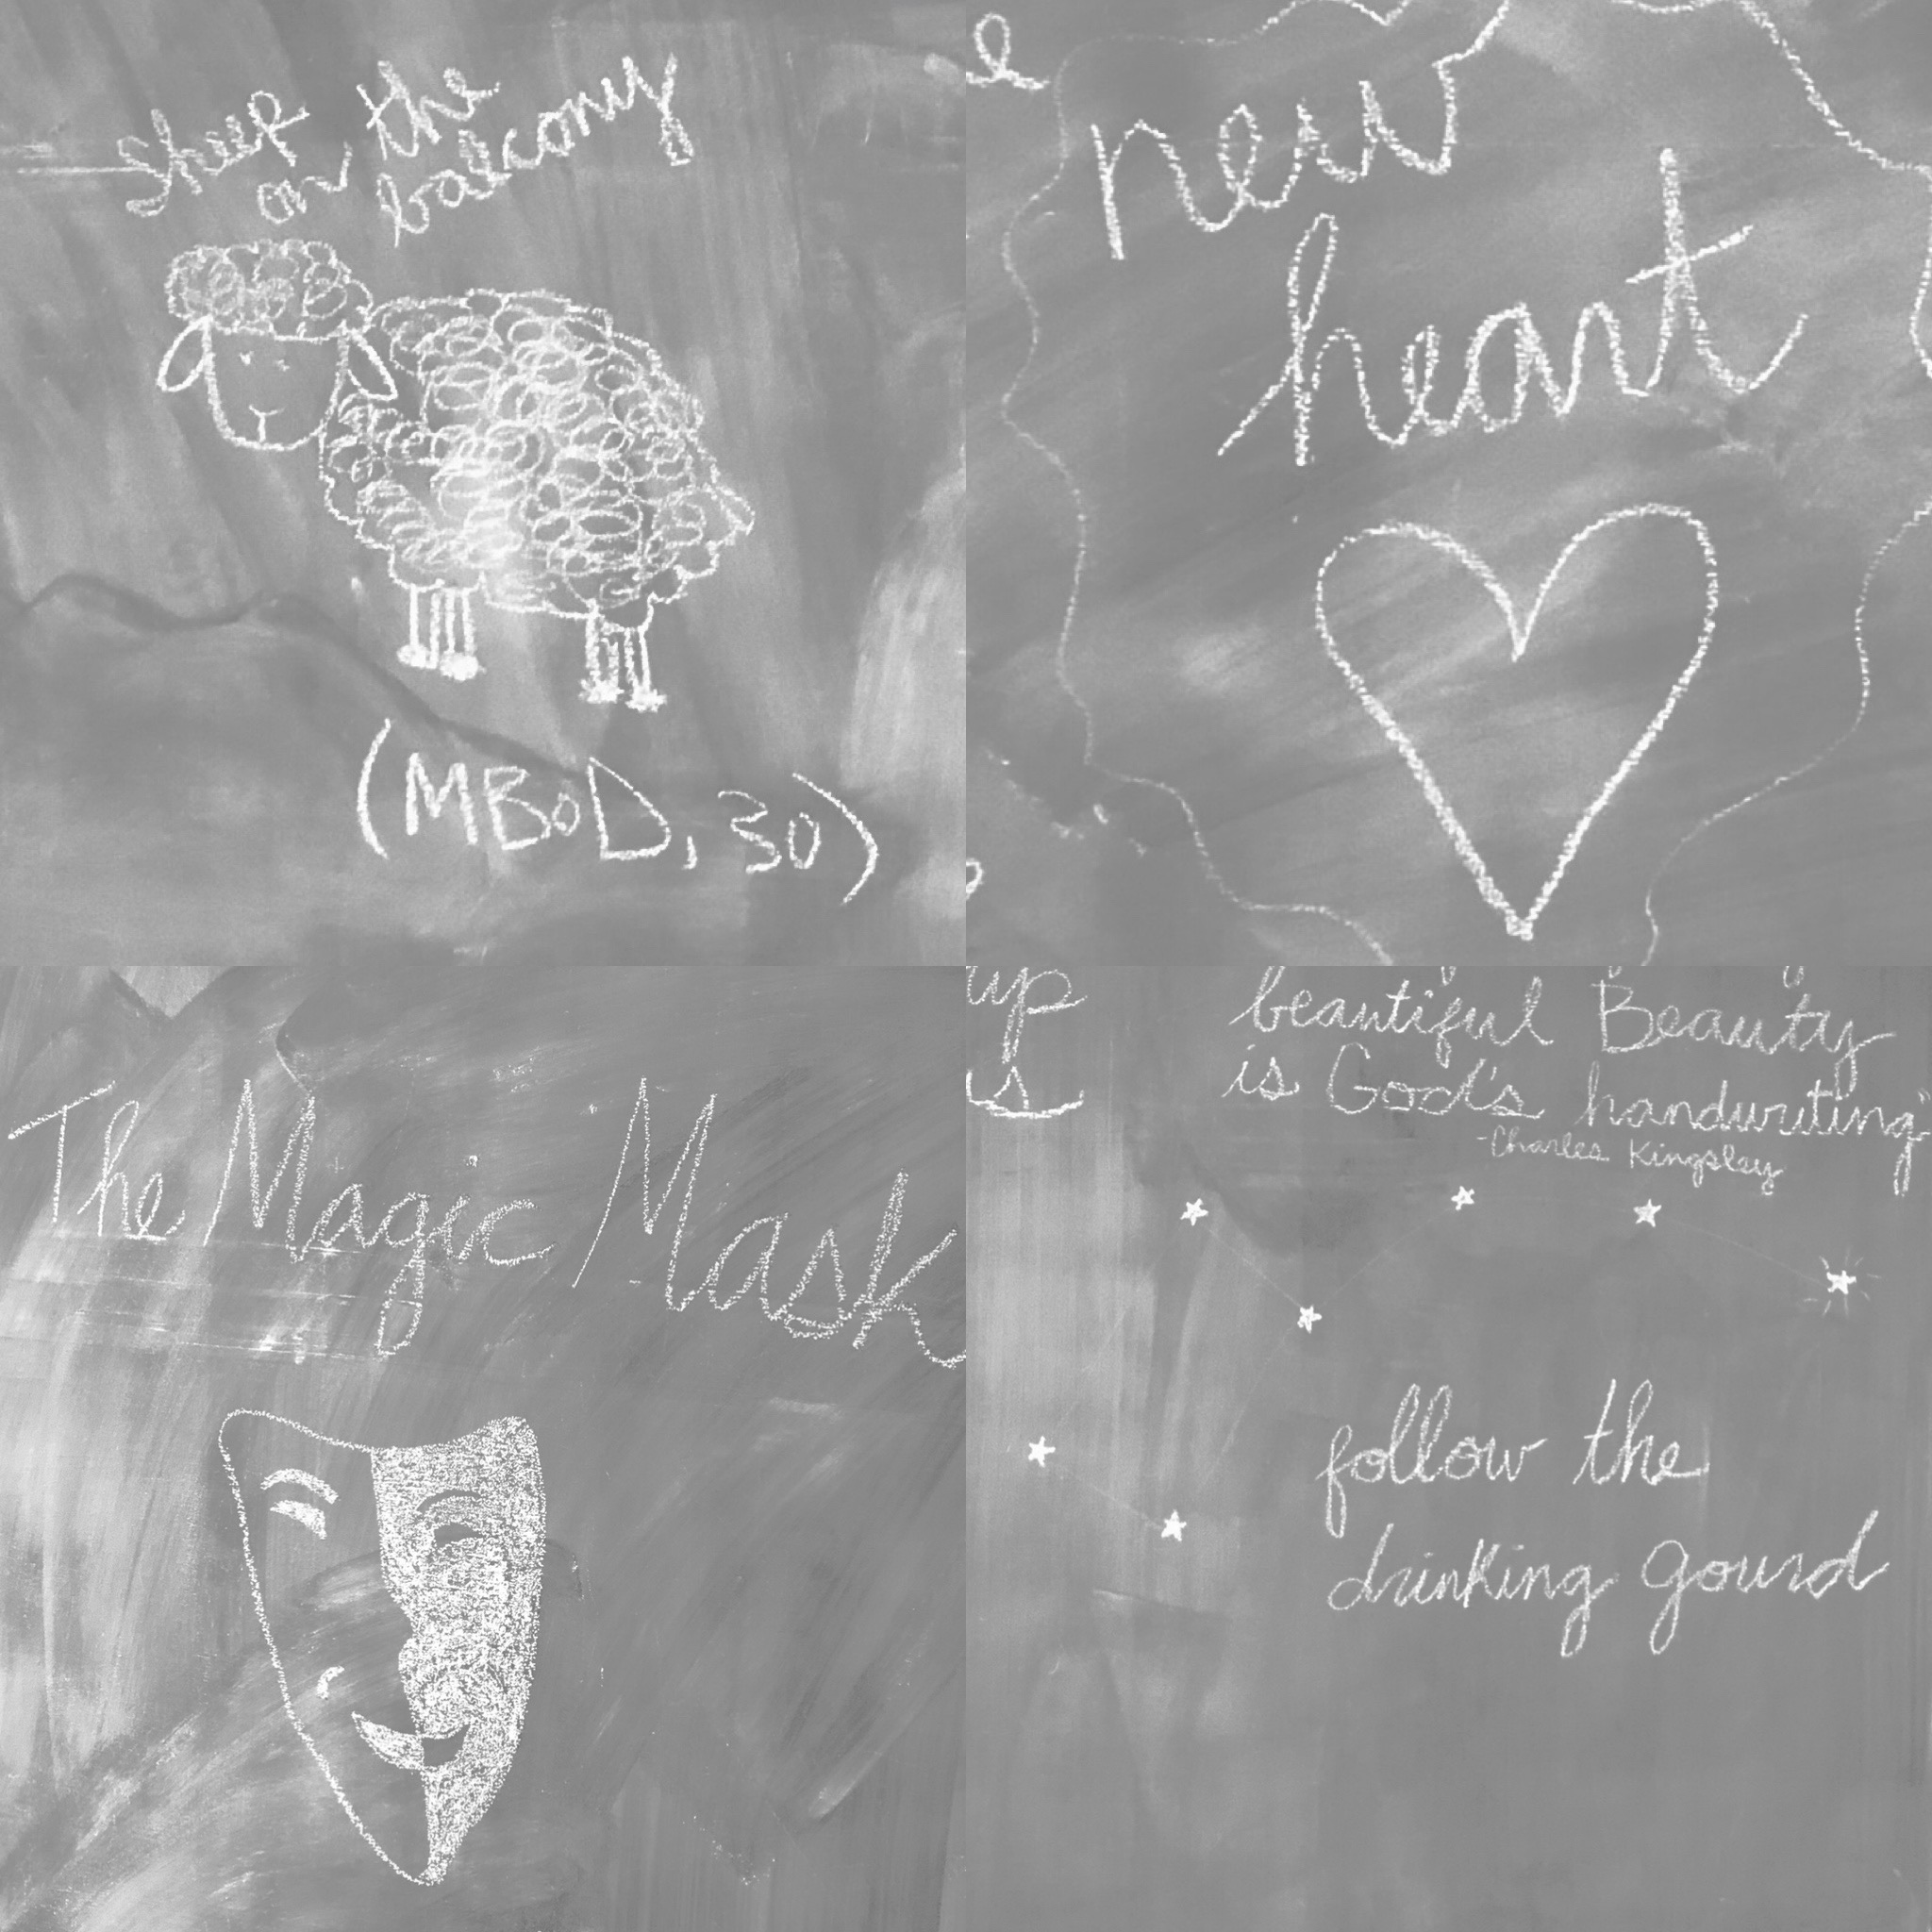 Sheep the
on balcony
(MBoD, 30)
new
heart
The Magic Mask
up
beautiful Beauty
is God's handwriting"
-Charles Kingsley
follow the
drinking gourd